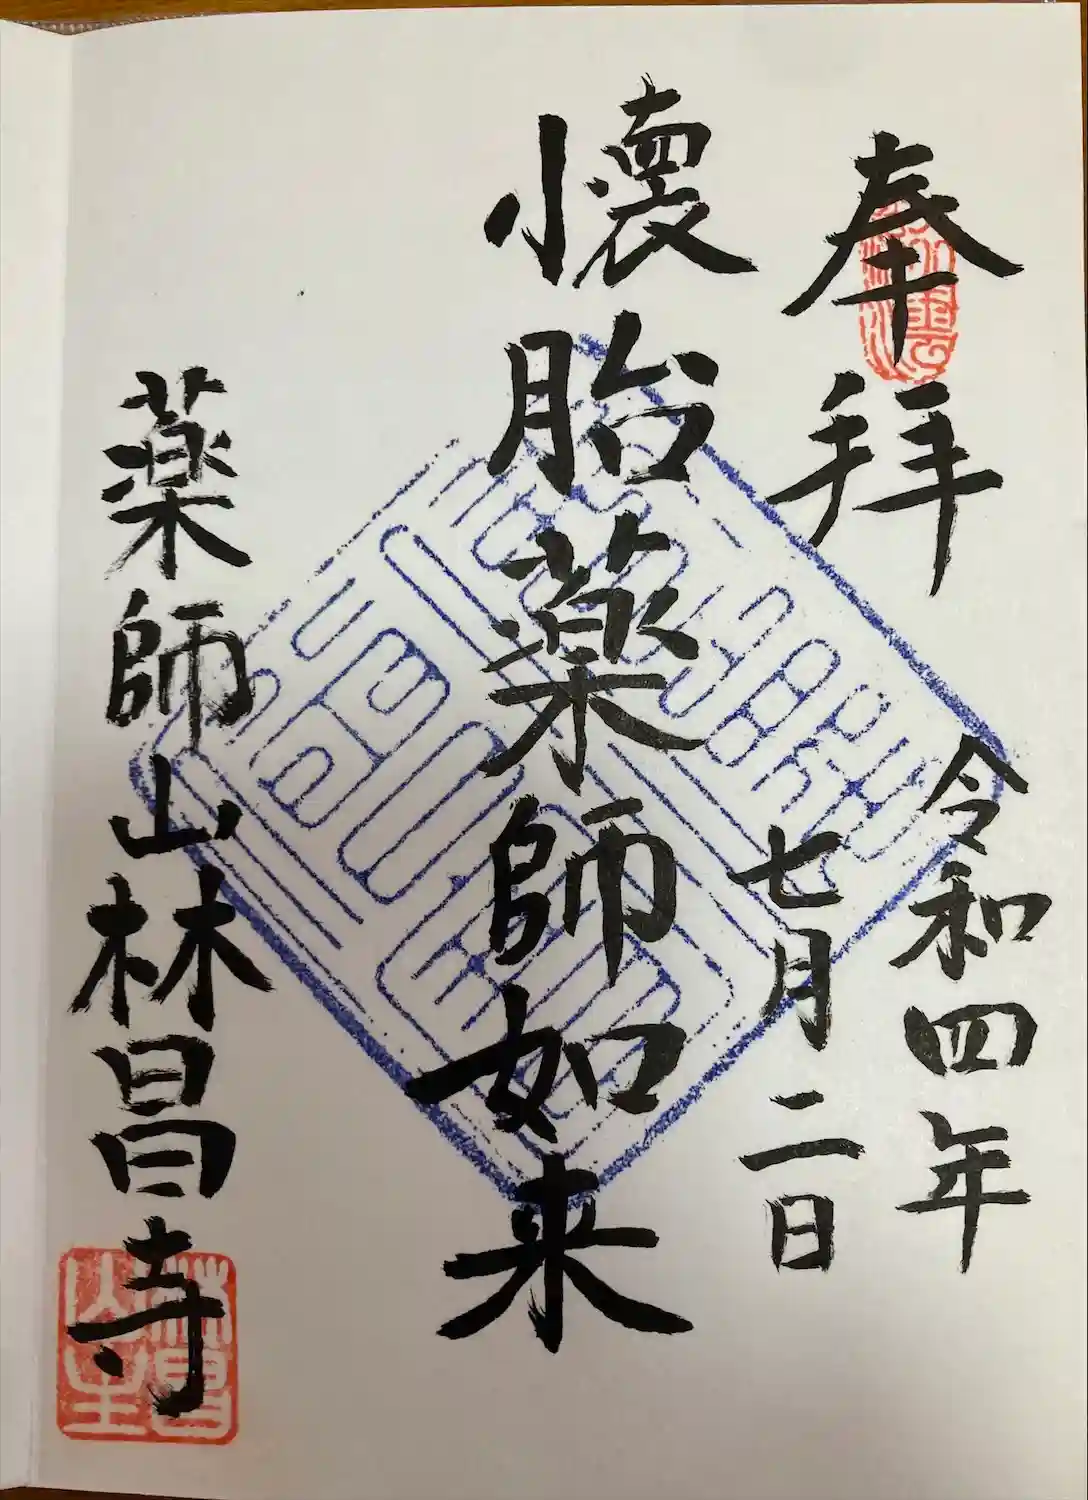 奉拜
令和四年
七月二日
懐胎薬師如来
薬師山林昌寺